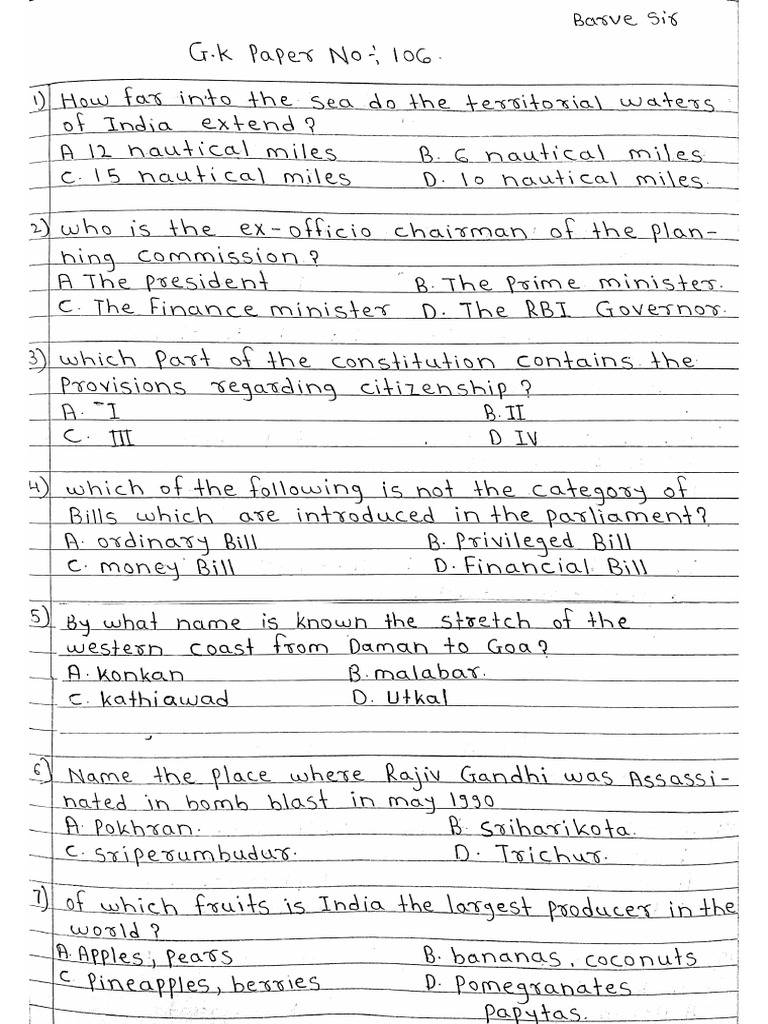 Barve Sir
G.K Paper No:; 106.
1) How far into the sea do the territorial waters
of India extend?
A 12 nautical miles B. 6 nautical miles
C. 15 nautical miles D. 10 nautical miles.
2) who is the ex-officio chairman of the plan-
ning commission?
A The president B. The Prime minister.
C. The Finance minister D. The RBI Governor.
3) which Part of the constitution contains the
Provisions regarding citizenship?
A. I B. II
C. III D IV
4) which of the following is not the category of
Bills which are introduced in the parliament?
A. ordinary Bill B. Privileged Bill
C. money Bill D. Financial Bill
5) By what name is known the stretch of the
western coast from Daman to Goa?
A. konkan B. malabar.
C. kathiawad D. Utkal
6) Name the place where Rajiv Gandhi was Assassi-
nated in bomb blast in may 1990
A. Pokhran. B. sriharikota.
C. sriperumbudur. D. Trichur.
7) of which fruits is India the largest producer in the
world?
A. Apples, pears B. bananas, coconuts
C. Pineapples, berries D. Pomegranates
Papytas.